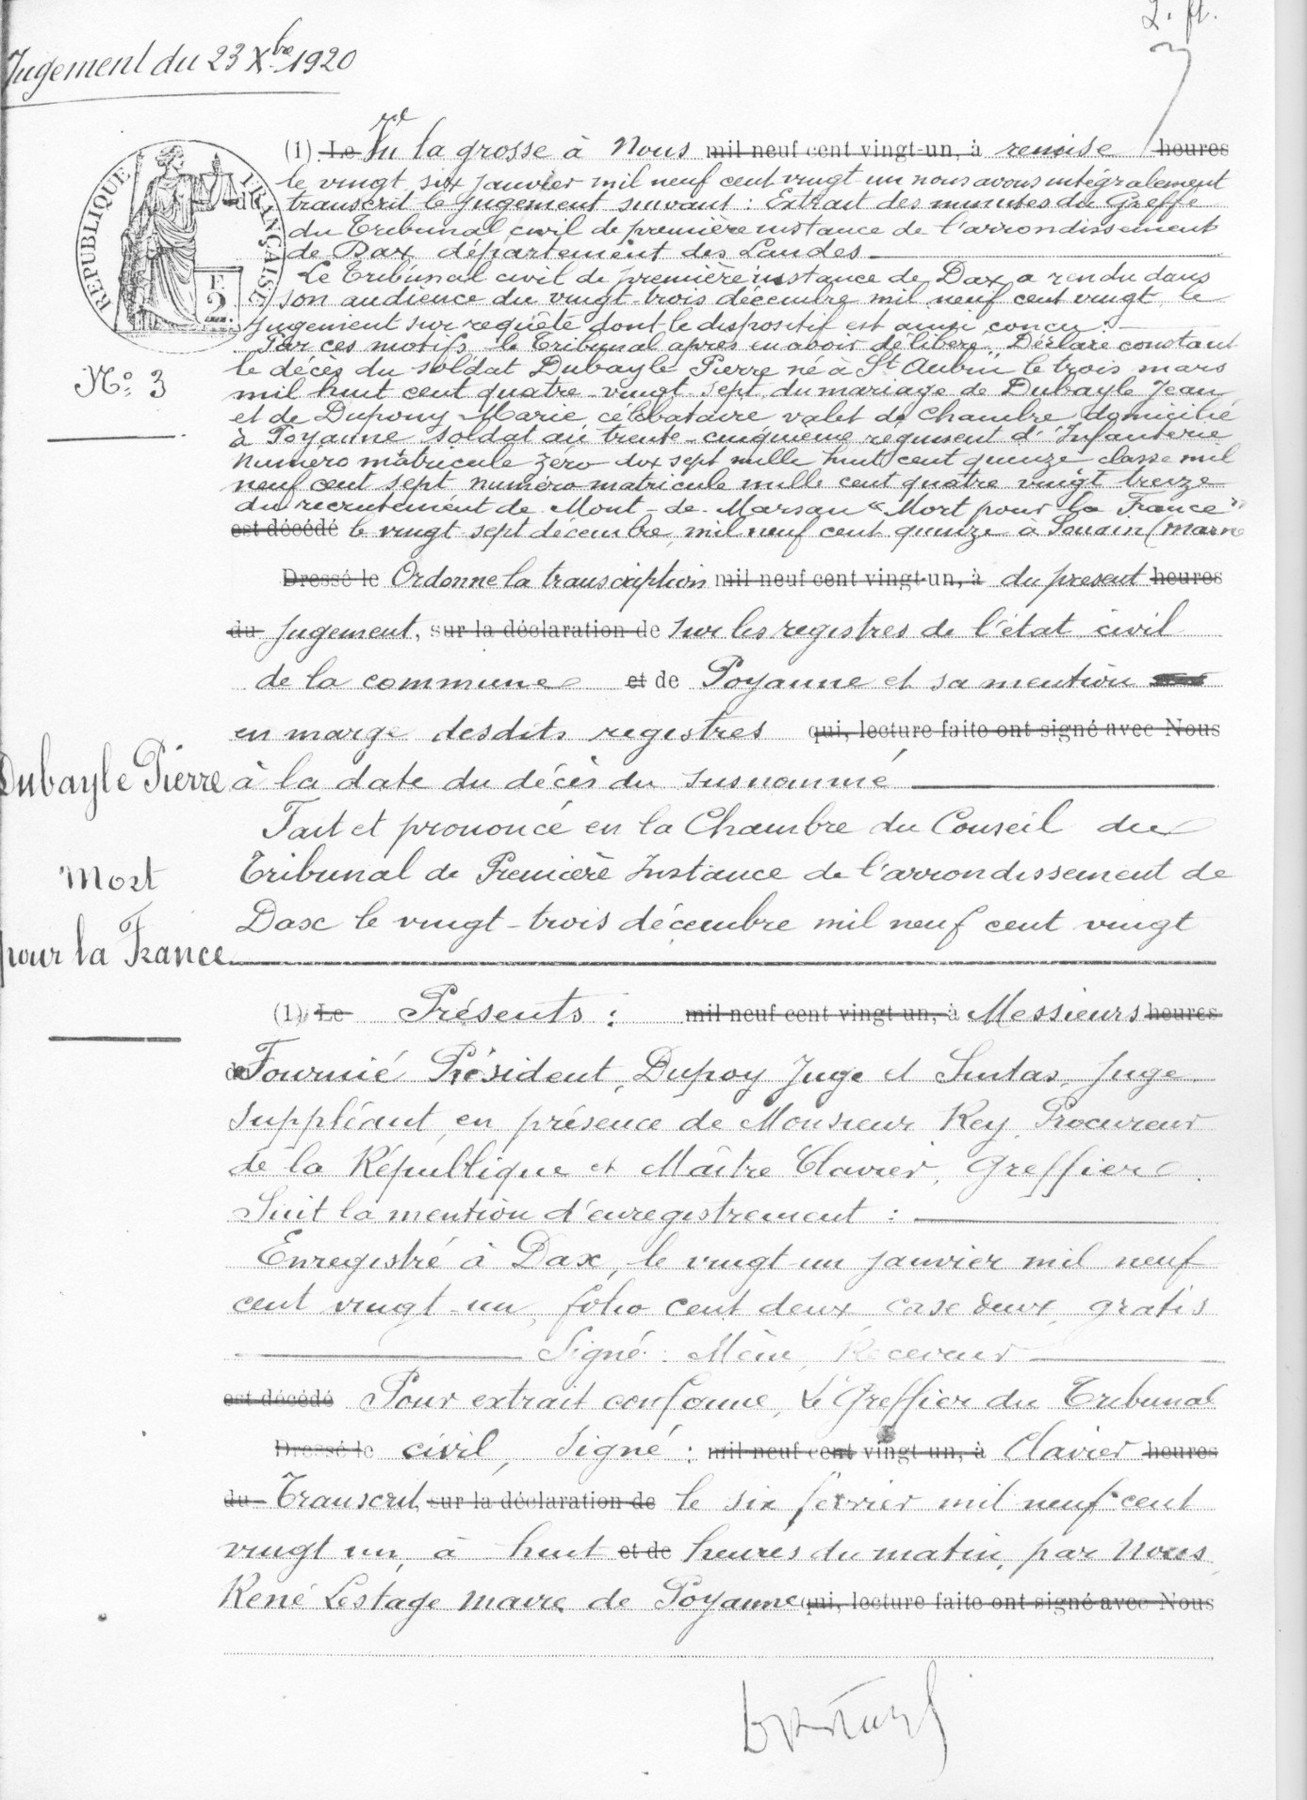 2. ft.
Jugement du 23 Xbre 1920
(1) Le Vu la grosse à Nous mil neuf cent vingt-un, à remise heures
le vingt six janvier mil neuf cent vingt-un nous avons intégralement
transcrit le jugement suivant : Extrait des minutes du Greffe
du Tribunal civil de première instance de l'arrondissement
de Dax, département des Landes
Le Tribunal civil de première instance de Dax a rendu dans
son audience du vingt-trois décembre mil neuf cent vingt, le
jugement sur requête dont le dispositif est ainsi conçu :
Par ces motifs, le Tribunal après en avoir délibéré, Déclare constant
le décès du soldat Dubayle Pierre né à St Aubin le trois mars
mil huit cent quatre-vingt sept, du mariage de Dubayle Jean
et de Dupouy Marie célibataire valet de chambre domicilié
à Poyanne soldat au trente-cinquième régiment d'Infanterie
numéro matricule zéro dix sept mille huit cent quinze classe mil
neuf cent sept numéro matricule mille cent quatre vingt treize
du recrutement de Mont-de-Marsan "Mort pour la France"
est décédé le vingt sept décembre, mil neuf cent quinze à Souain (Marne
Dressé le Ordonne la transcription mil neuf cent vingt-un, à du présent heures
du Jugement, sur la déclaration de sur les registres de l'état civil
de la commune et de Poyanne et sa mention
en marge desdits registres qui, lecture faite ont signé avec Nous
à la date du décès du susnommé
Fait et prononcé en la Chambre du Conseil du
Tribunal de Première Instance de l'arrondissement de
Dax le vingt-trois décembre mil neuf cent vingt
(1) Le Présents : mil neuf cent vingt un, à Messieurs heures
Fournié Président, Dupoy Juge et Sintas, Juge
suppléant, en présence de Monsieur Rey, Procureur
de la République et Maître Clavier, Greffier
Suit la mention d'enregistrement :
Enregistré à Dax, le vingt-un janvier mil neuf
cent vingt-un, folio cent deux, case deux, gratis
Signé : Receveur
est décédé Pour extrait conforme, Le Greffier du Tribunal
Dressé le civil, Signé : mil neuf cent vingt un, à Clavier heures
du Transcrit, sur la déclaration de le six février mil neuf cent
vingt un, à huit et de heures du matin, par Nous
René Lestage maire de Poyanne qui, lecture faite ont signé avec Nous
RÉPUBLIQUE FRANÇAISE
2
No 3
Dubayle Pierre
Mort
pour la France